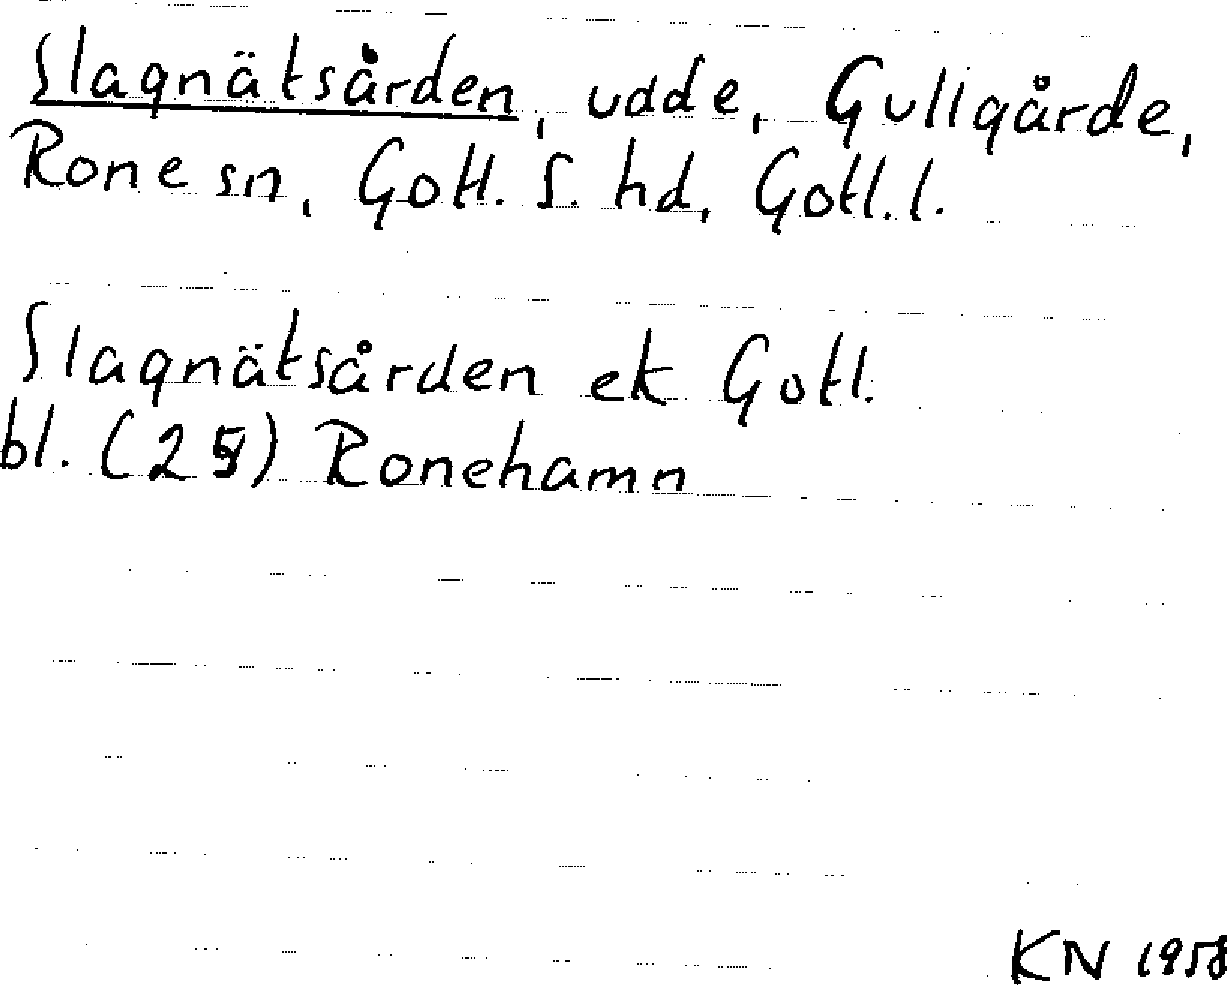 Slagnätsården, udde, Gullgårde,
Rone sn, Gotl. S. hd, Gotl. l.
Slagnätsården ek Gotl.
bl. (25) Ronehamn
KN 1958